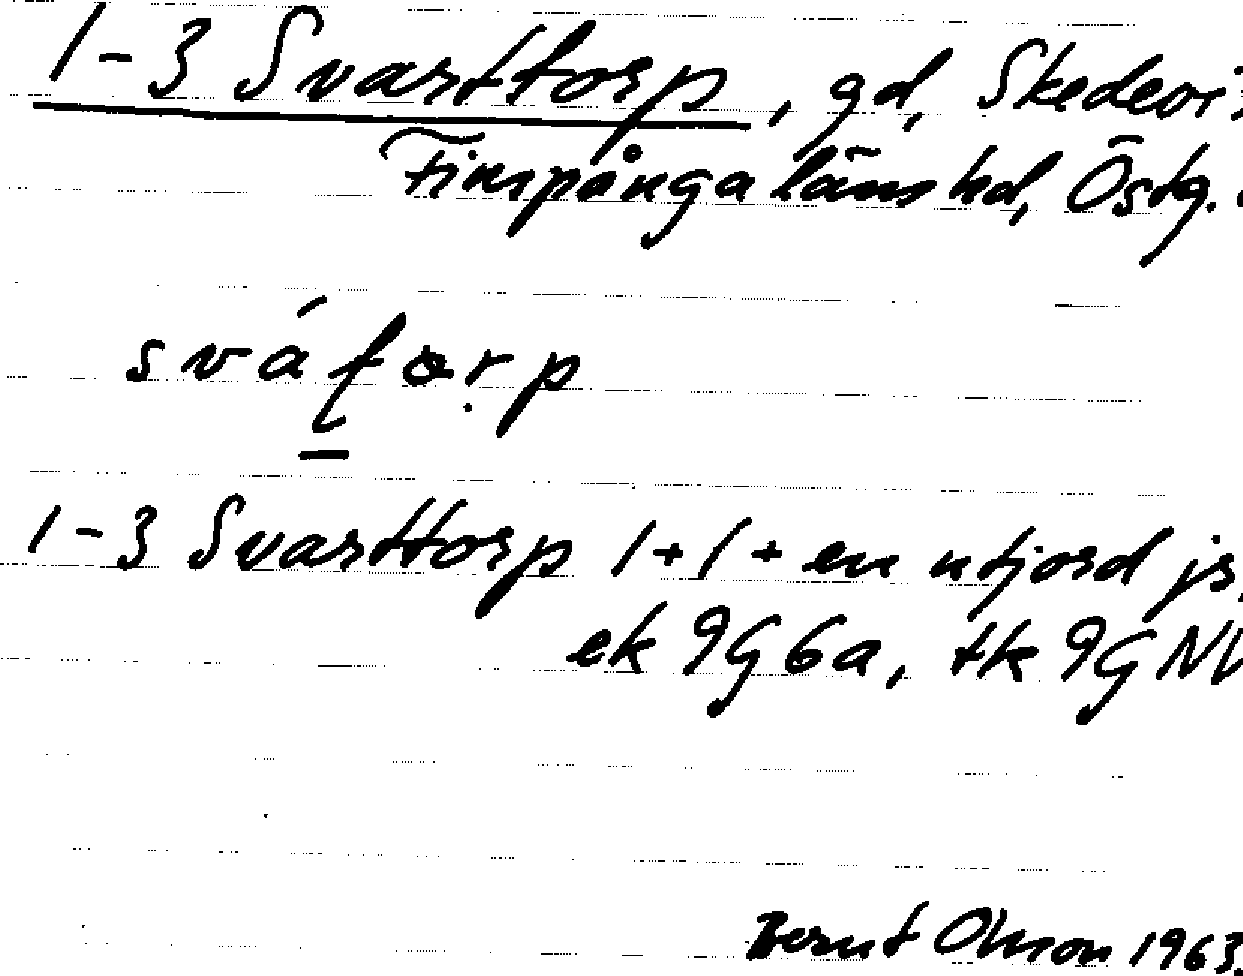 1-3 Svarttorp, gd, Skedevi
Finspånga läns hd, Östg.
1-3 Svarttorp 1+1+en utjord js,
ek 9G6a, tk 9GNV
Bernt Olsson 1963.